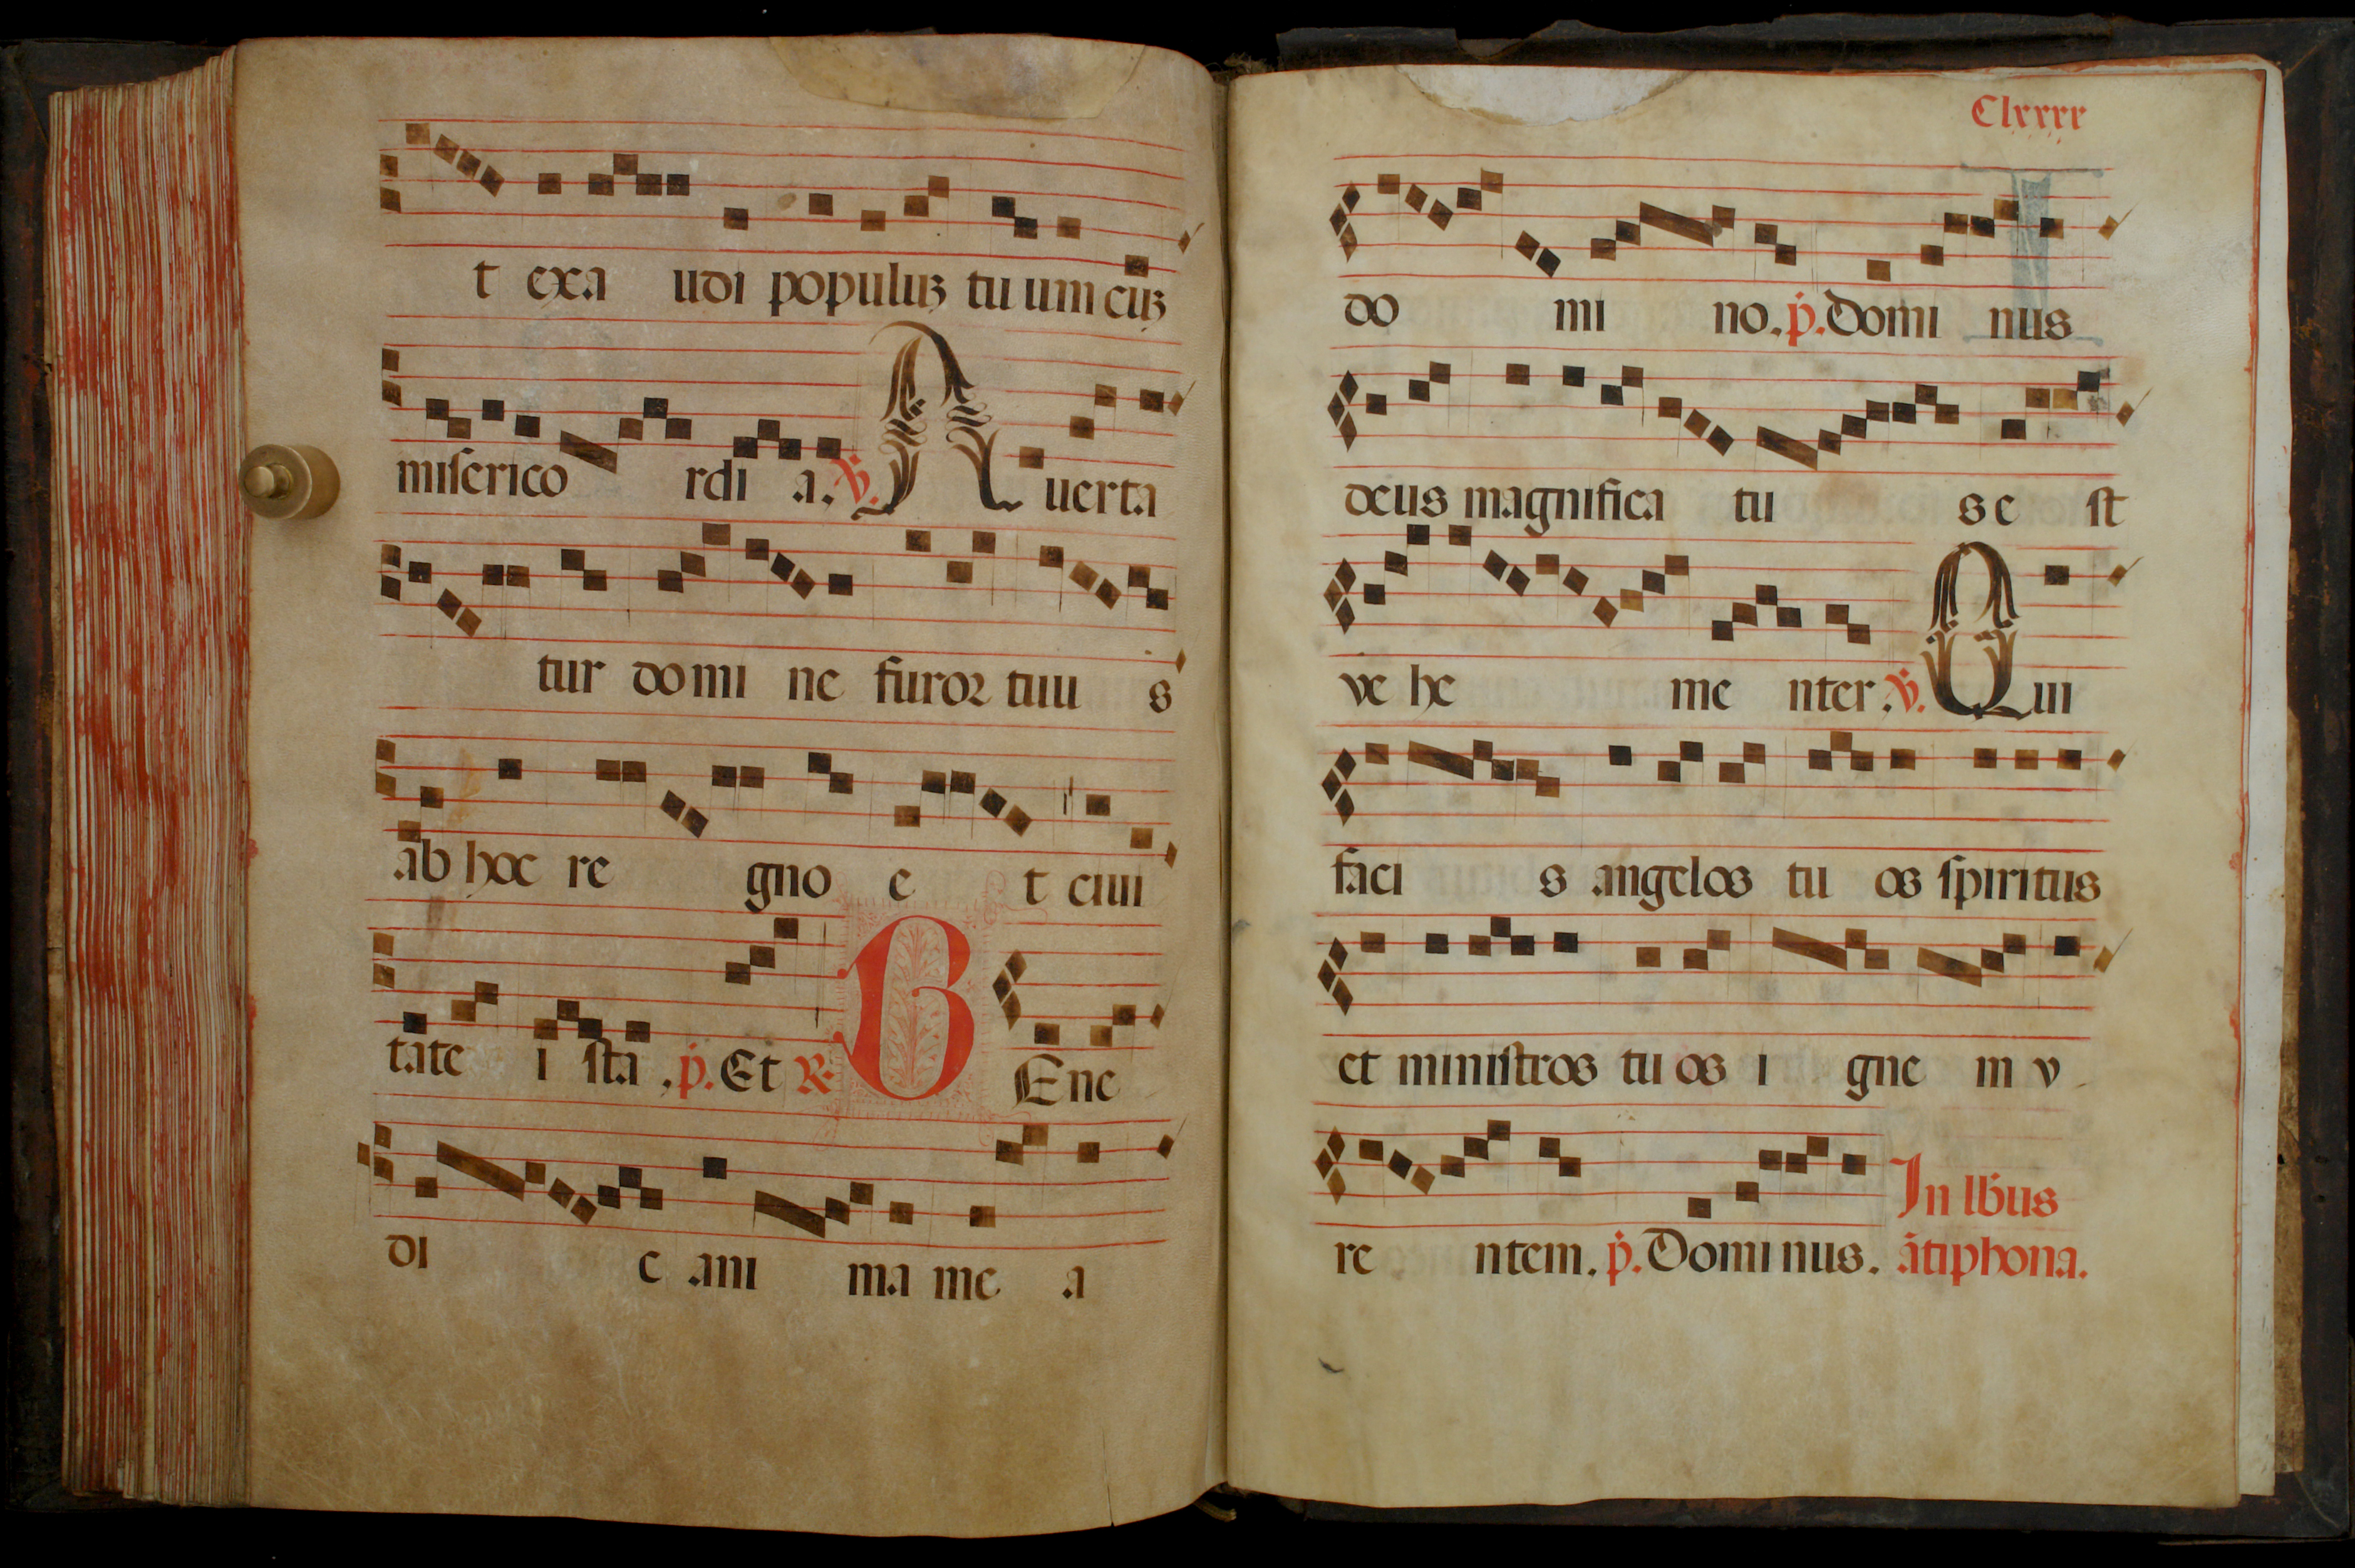 t exa udi populuꝫ tuum cuꝫ
miſerico rdi a. ℣. Auerta
tur domi ne furoꝛ tuu s
ab hoc re gno e t ciui
tate i ſta. ṗ. Et ℞. B Ene
di c ani ma me a
Clxxxx
do mi no. ṗ. Domi nus
deus magnifica tu s e ſt
ve he me nter. ℣. Qui
faci s angelos tu os ſpiritus
et miniſtros tuos i gne m v
re ntem. ṗ. Dominus.
In lb̄us
ãtiphona.